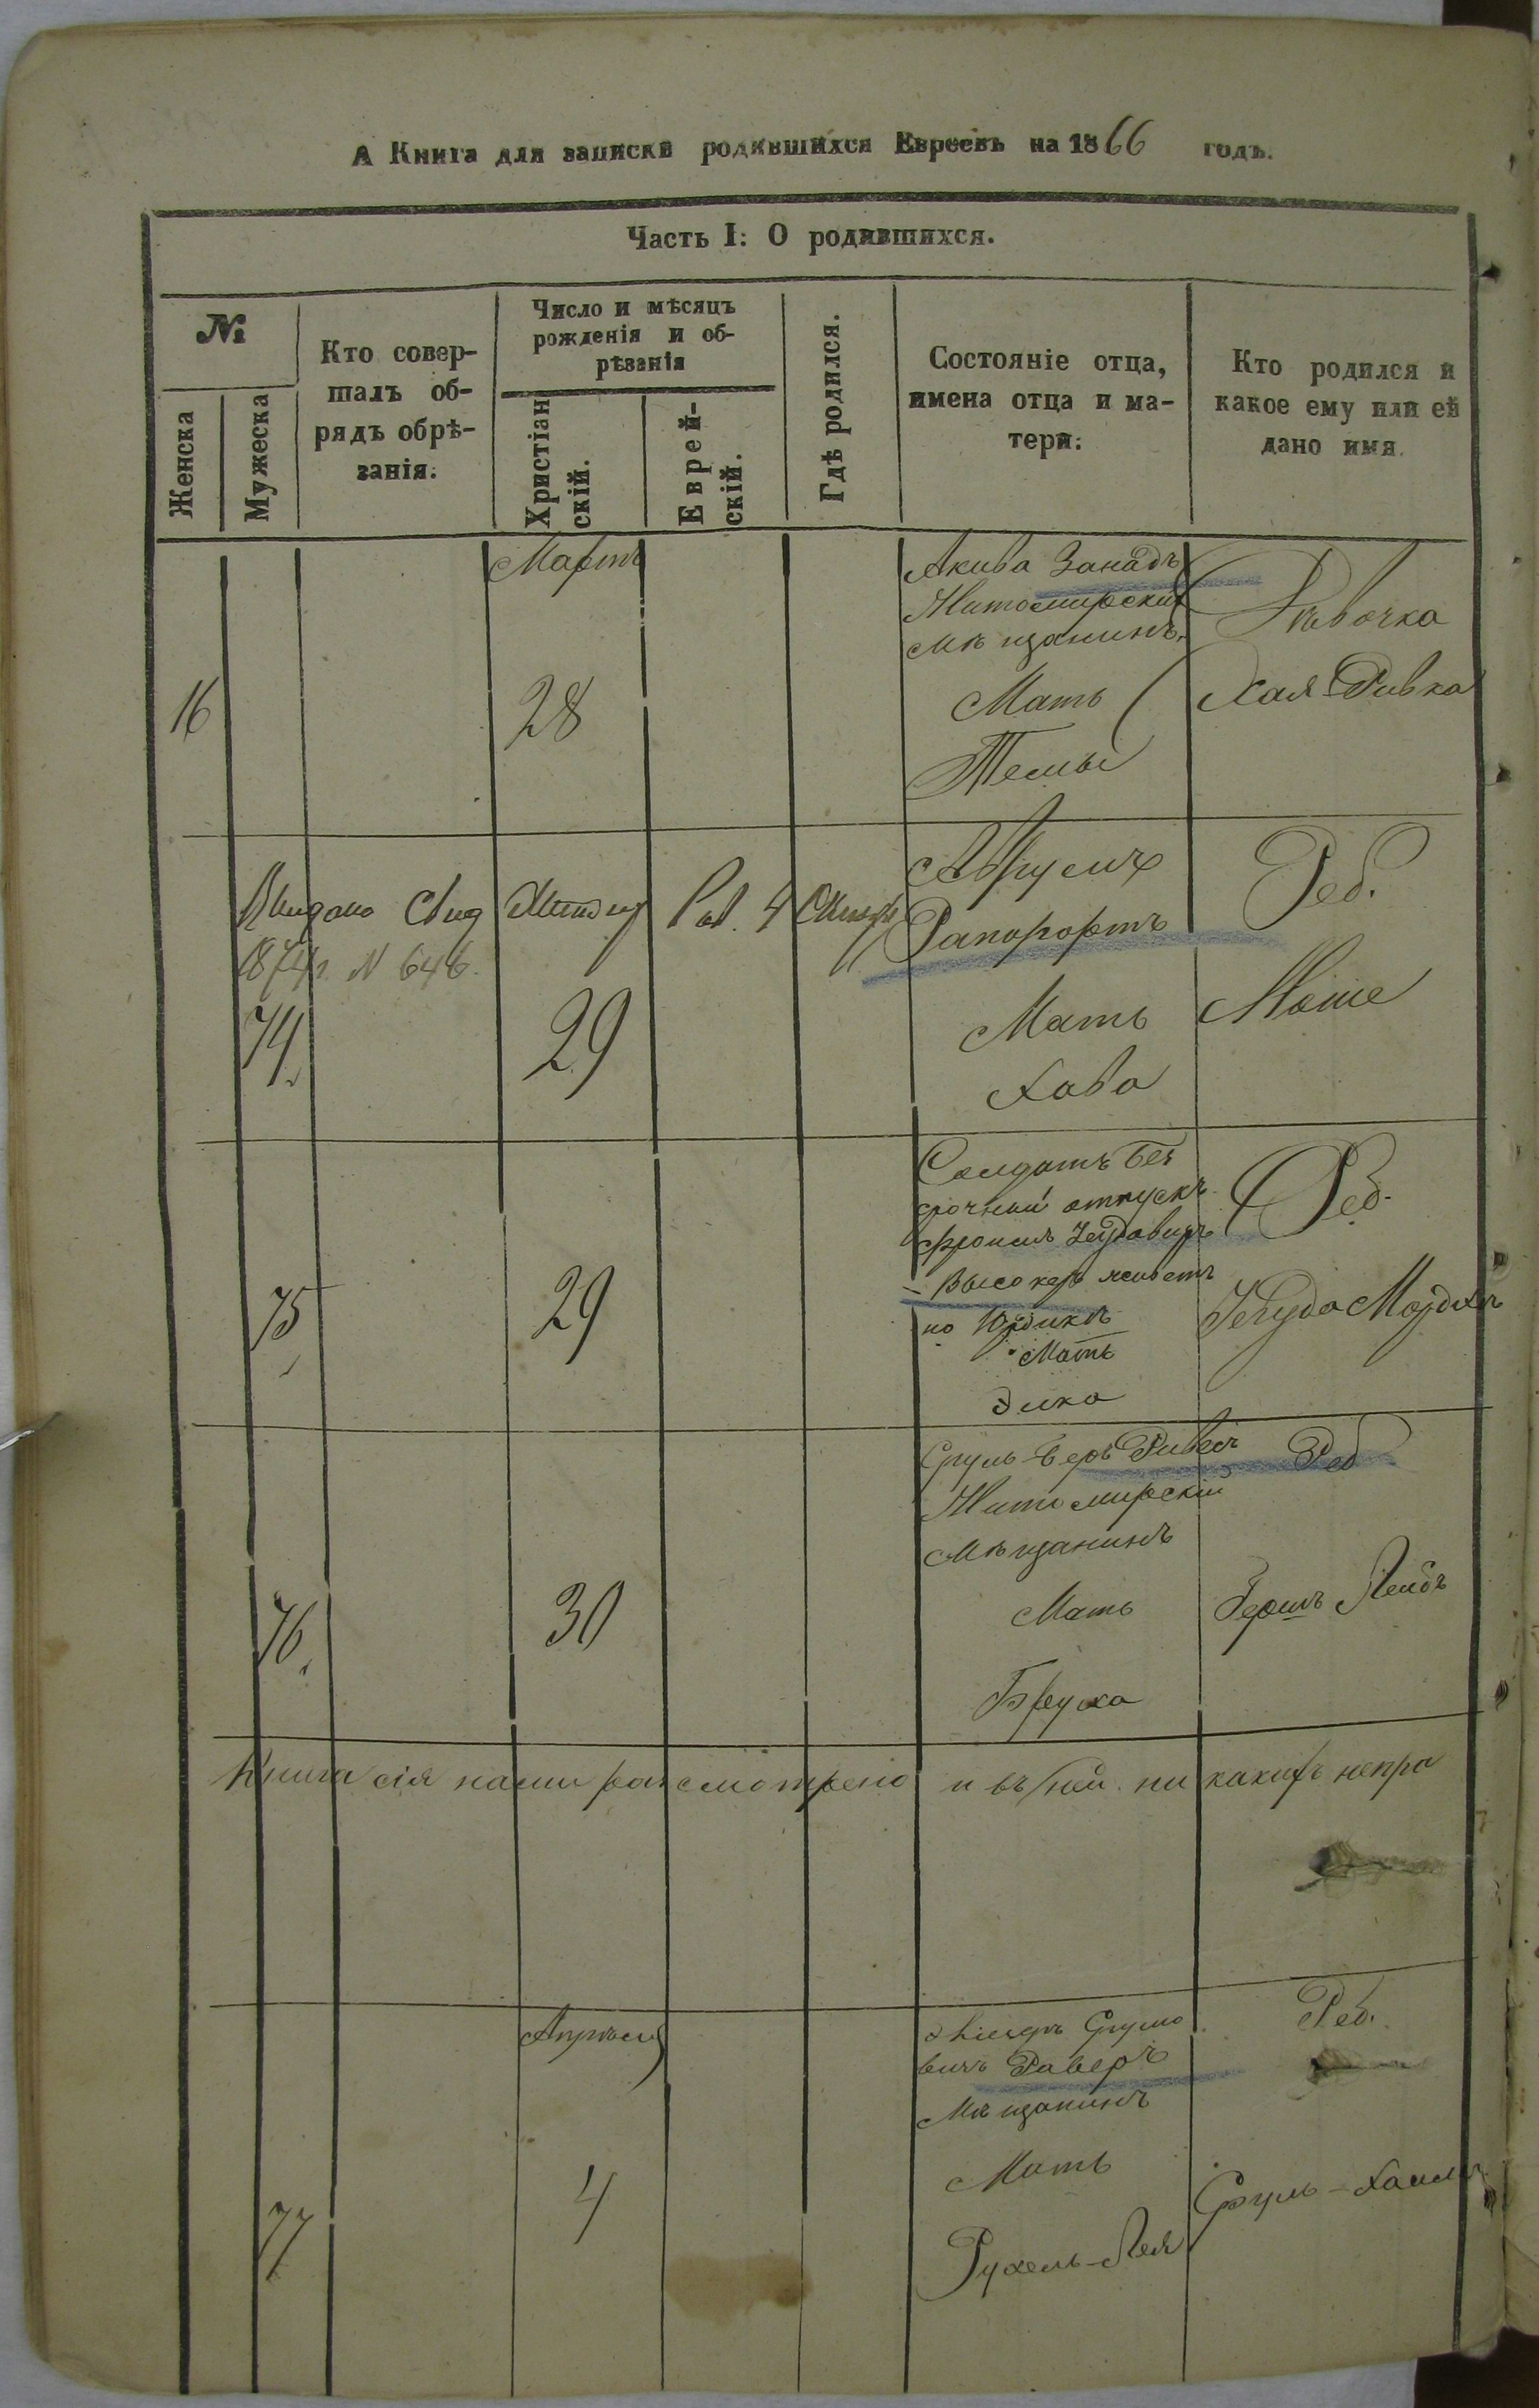 А Книга для записки родившихся Евреевъ на 1866 годъ.
Часть I: О родившихся.
№
Женска
Мужеска
Кто совер-
шалъ об-
рядъ обрѣ-
занія.
Число и мѣсяцъ
рожденія и об-
рѣзанія
Христіан
скій.
Еврей-
скій.
Гдѣ родился.
Состояніе отца,
имена отца и ма-
тери.
Кто родился и
какое ему или ей
дано имя.
16
Мартъ
28
Акива Занадъ
Житомирский
мѣщанинъ.
Мать
Темы
Дѣвочка
Хая-Ривка
Выдано Свид
1874г. N 646.
74.
29
Аврумъ
Рапорортъ
Мать
Хава
Реб.
Моше
75
29
Солдатъ без
срочный отпускъ
Высокеръ живетъ
по
Мать
Элка
Реб.
Иегуда Мордхъ
76.
30
Сруль-Беръ Ривесъ
Житомирскій
Мѣщанинъ
Мать
Бруха
Реб
Гершъ Лейбъ
Книга сія нами разсмотрено и въ ней никакихъ непра
77
Апрѣль
4
Срумо
вичъ Раверъ
Мѣщанинъ
Мать
Рухель-Лея
Реб.
Сруль-Хаимъ